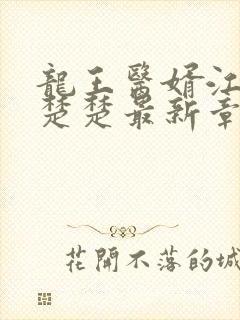 龍王醫婿江
楚楚最新章
花開不落的城